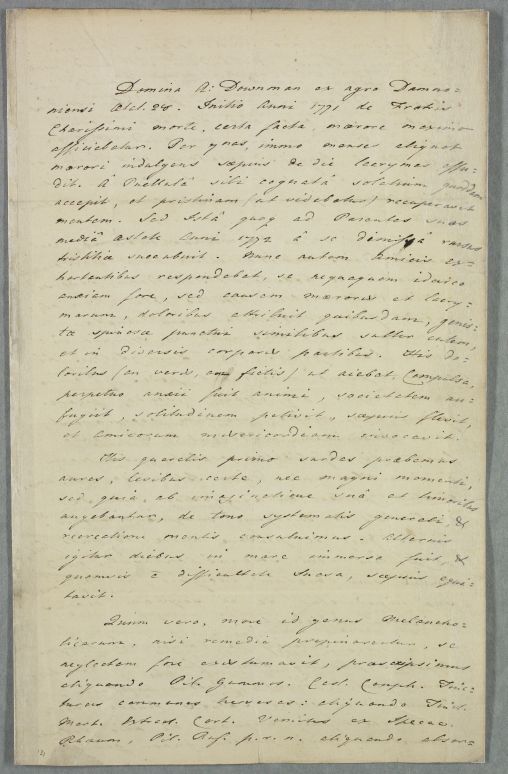 Domina A: Downman ex agro Damno=
niensi Ætat. 28. Initio Anni 1771 de Fratris
Charissimi morte, certa facta, mærore maximo
afficiebatur. Per ipsos, immo menses aliquot
mærori indulgens sæpius de die lacrymas effu=
dit. A Puellulâ sibi cognatâ solatium quoddam
accepit, et pristinam (ut videbatur) recuperavit
mentem. Sed Istâ quoq ad Parentes suos
mediâ Æstate Anni 1772 â se dimissâ rursus
tristitiæ succubuit. Nunc autem Amicis ex=
hortantibus respondebat, se nequaquam idcirco
anxiam fore, sed causam mæroris et lacry=
marum, doloribus attribuit quibusdam, genis=
tæ spinosæ punctui similibus subter cutem,
et in diversis corporis partibus. His do=
loribus (an veris, an fictis) ut aiebat compulsa,
perpetuo anxii fuit animi, societatem au=
fugiit, solitudinem petivit, sæpius flevit,
et amicorum misericordiam invocavit.
His querelis primo surdas præbemus
aures, levibus certe, nec magni momenti,
sed quia ab imaginatione suâ et timoribus
augebantur, de tono systematis generali, &
recreatione mentis consuluimus. Alternis
igitur diebus in mare immersa fuit, &
quamvis c difficultate suasa, sæpius equi=
tavit.
Quum vero, more id genus Melancho=
licorum, nisi remedia propinarentur, se
neglectam fore existimavit, præscripsimus
aliquando Pil. Gummos. Cast. Comph. Tinc=
turas communes nervosas: aliquando Tinct.
Mart. Infus. Cort. Vomitus ex Ipecac.
Rhæum, Pil. Ruf. p. r. n. aliquando absor=